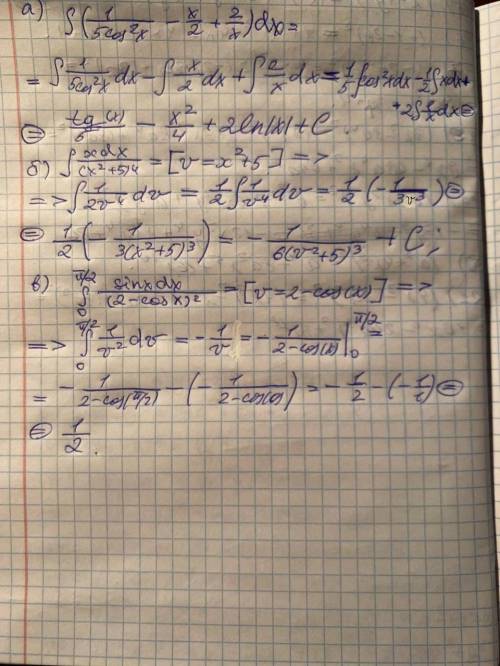 а) ∫(1/(5cos²x) - x/2 + 2/x)dx=
= ∫1/(5cos²x) dx - ∫x/2 dx + ∫2/x dx = 1/5 ∫cos²x dx - 1/2 ∫x dx +
+ 2∫1/x dx ⊜
⊜ tg(x)/5 - x²/4 + 2ln|x| + C.
б) ∫xdx/(x²+5)4 = [v=x²+5] =>
=> ∫1/(2v⁴) dv = 1/2 ∫1/v⁴ dv = 1/2 (-1/(3v³)) ⊜
⊜ 1/2 (-1/(3(x²+5)³)) = -1/(6(v²+5)³) + C;
в) ∫₀^(π/2) sinxdx/(2-cosx)² = [v=2-cos(x)] =>
=> ∫₀^(π/2) 1/v² dv = -1/v = -1/(2-cos(x)) |₀^(π/2) =
= -1/(2-cos(π/2)) - (-1/(2-cos(0))) = -1/2 - (-1/1) ⊜
⊜ 1/2.